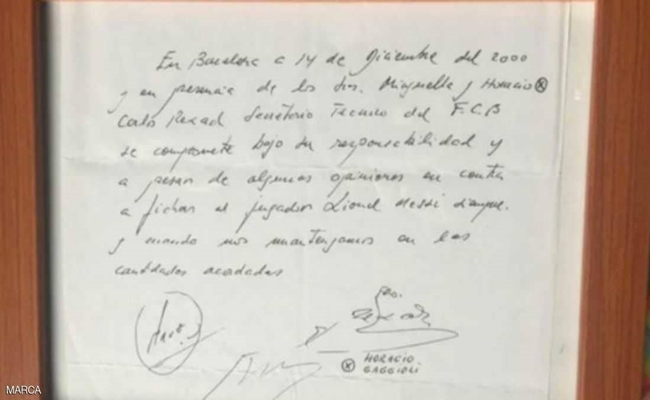 En Barcelona a 14 de Diciembre del 2000
y en presencia de los Srs. Minguella y Horacio ⓧ
Carlos Rexach Secretario Tecnico del F.C.B
se compromete bajo su responsabilidad y
a pesar de algunas opiniones en contra
a fichar al jugador Lionel Messi siempre
y cuando nos mantengamos en las
cantidades acordadas
ⓧ HORACIO
GAGGIOLI
MARCA